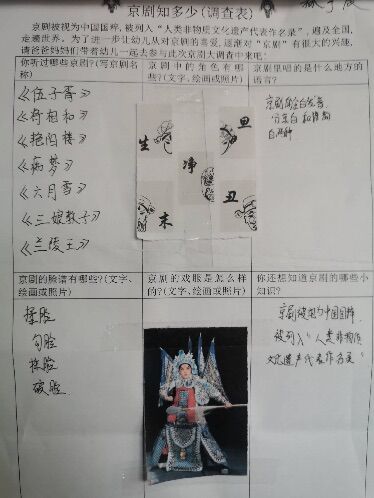 京剧知多少(调查表)
京剧被视为中国国粹,被列入“人类非物质文化遗产代表作名录”,遍及全国,
走遍世界。为了进一步让幼儿从对京剧的喜爱,逐渐对“京剧”有很大的兴趣,
请爸爸妈妈们带着幼儿一起参与此次京剧大调查中来吧!
你听过哪些京剧?(写京剧名称)
《伍子胥》
《将相和》
《艳阳楼》
《六月雪》
《三娘教子》
《兰陵王》
京剧中的角色有哪些?(文字、绘画或照片)
生
旦
净
末
丑
京剧里唱的是什么地方的语言?
京剧的脸谱有哪些?(文字、绘画或照片)
揉脸
勾脸
抹脸
破脸
京剧的戏服是怎么样的?(文字、绘画或照片)
你还想知道京剧的哪些小知识?
京剧被视为中国国粹,
被列入“人类非物质
文化遗产代表作名录”